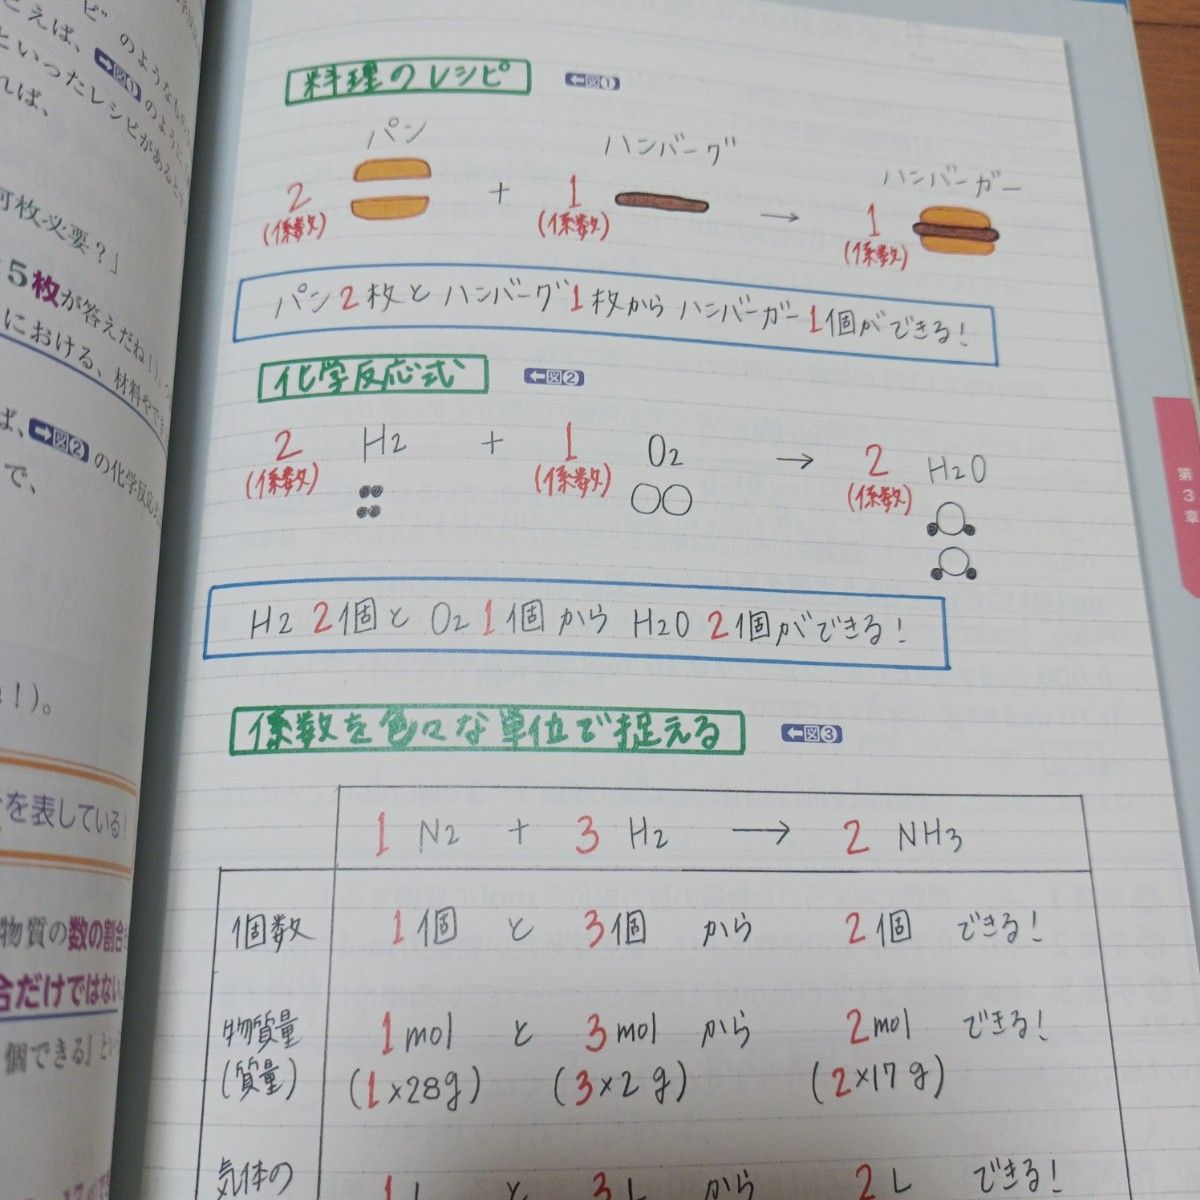 ピ”のようなもの
とえば、➡図①のように、
といったレシピがあると
れば、
何枚必要？」
5枚が答えだね！）。
における、材料や
ば、➡図②の化学反応
で、
ね！）。
を表している！
物質の数の割合
合だけではない
個できる」
料理のレシピ ←図①
パン ハンバーグ ハンバーガー
2 + 1 → 1
(係数) (係数) (係数)
パン2枚とハンバーグ1枚からハンバーガー1個ができる！
化学反応式 ←図②
2 H2 + 1 O2 → 2 H2O
(係数) (係数) (係数)
H2 2個と O2 1個から H2O 2個ができる！
係数を色々な単位で捉える ←図③
1 N2 + 3 H2 → 2 NH3
個数 1個 と 3個 から 2個 できる！
物質量 1mol と 3mol から 2mol できる！
(質量) (1×28g) (3×2g) (2×17g)
気体の 1L と 3L から 2L できる！
第3章